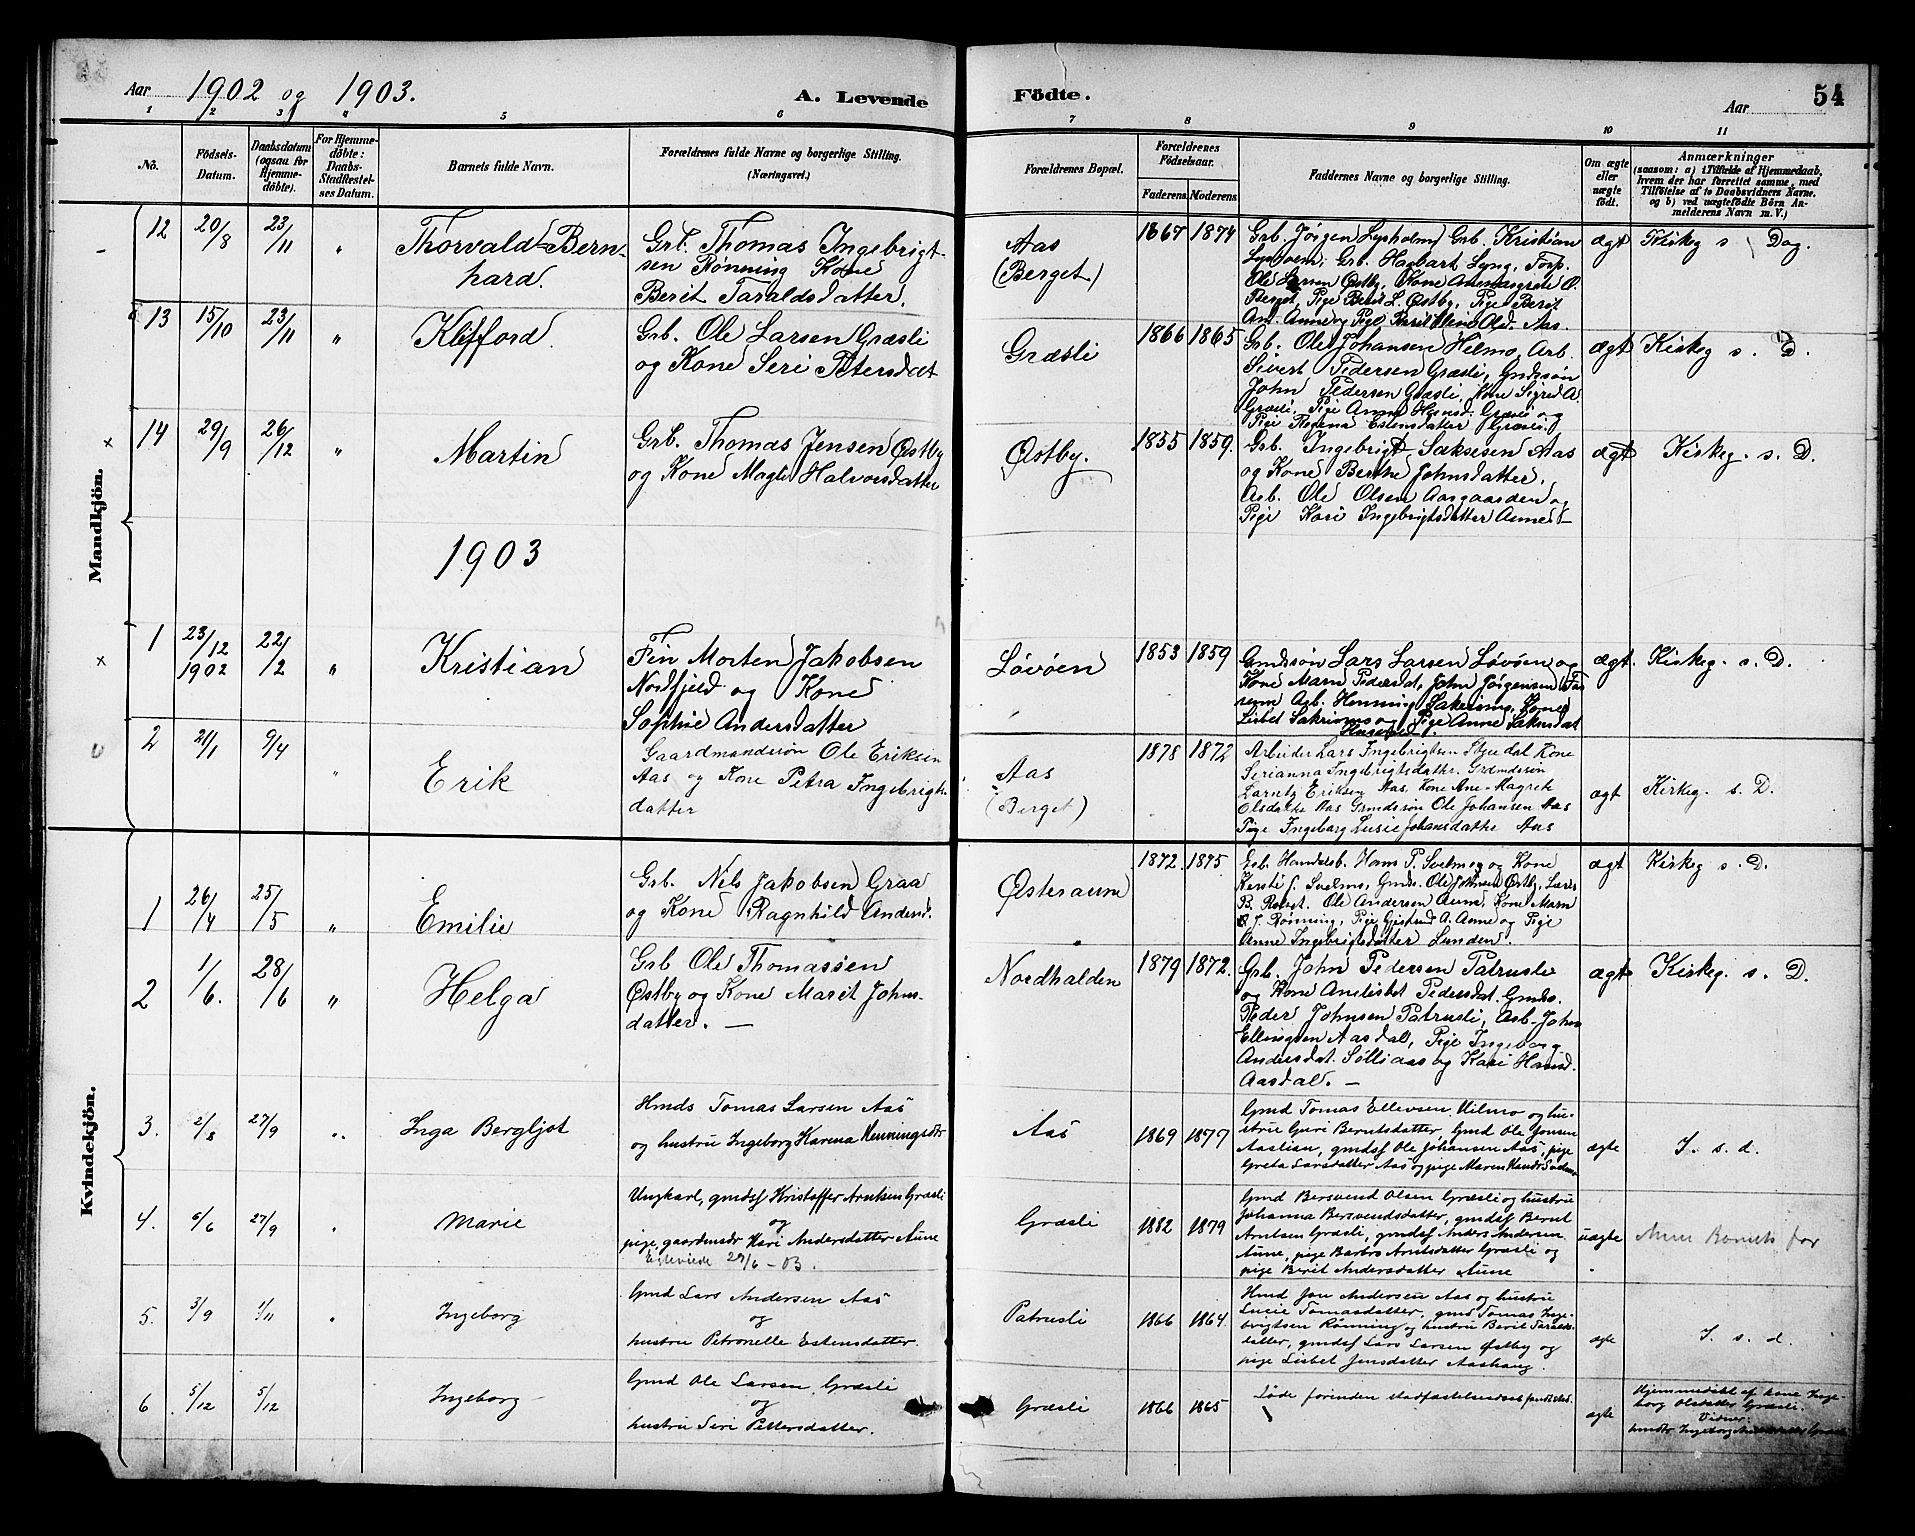 Aar 1902 og 1903.
A. Levende Födte.
Aar 54
1 2 3 4 5 6 7 8 9 10 11
No.
Födsels-Datum.
Daabsdatum (ogsaa for Hjemme-döbte).
For Hjemme-döbte: Daabs-Stadfæstel-ses Datum.
Barnets fulde Navn.
Forældrenes fulde Navne og borgerlige Stilling.
(Næringsvei.)
Forældrenes Bopæl.
Forældrenes Födselsaar.
Faderens Moderens
Faddernes Navne og borgerlige Stilling.
Om ægte eller uægte födt.
Anmærkninger
(saasom: a) i Tilfælde af Hjemmedaab,
hvem der har forrettet samme, med
Tilföielse af to Daabsvidners Navne.
og b) ved uægtefödte Börn An-
melderens Navn m. V.)
Mandkjön.
12 20/8 23/11 "
Thorvald Bern-
hard.
Grb. Thomas Ingebrigt-
sen Rønning Kone
Berit Taraldsdatter.
Aas
(Berget)
1867 1874
Grb. Jørgen Lysholm Grb. Kristian
Grb. Hagbart Lyng, Forp.
Ole Larsen Østby, Kone Annmargrete O.
Berget, Pige Berit L. Østby, Pige Berit
And. Aune og Pige Berit Oline Olsd. Aas.
ægt Kirkeg s. Dag.
13 15/10 23/11 "
Klifford.
Grb. Ole Larsen Græsli
og Kone Seri Petersdat
Græsli
1866 1865
Grb. Ole Johansen Helmo, Arb.
Sivert Pedersen Græsli, Gmdssøn
John Pedersen Græsli, Kone Sigrid A.
Græsli, Pige Anne Græsli og
Pige Regina Estensdatter Græsli.
ægt Kirkeg s. D.
14 29/9 26/12 "
Martin
Grb. Thomas Jensen Østby
og Kone Magli Halvorsdatter
Østby.
1855 1859.
Grb. Ingebrigt Saksesen Aas
og Kone Berthe Johnsdatter.
Arb. Ole Olsen Aasgaarden og
Pige Kari Ingebrigtsdatter Aune
ægt Kirkeg. s. D.
1903
1 23/12 1902 22/2 "
Kristian
Fin Morten Jakobsen
Nordfjeld og Kone
Sophie Andersdatter
Løvøen
1853 1859
Gmdssøn Lars Larsen Løvøen og
Kone Marn Pedersdat, John Jørgensen
Arb. Henning Kone
Lisbet og Pige Anne
ægt. Kirkeg. s. D.
2 21/1 9/4 "
Erik
Gaardmandssøn Ole Eriksen
Aas og Kone Petra Ingebrigts
datter
Aas
(Berget)
1878 1872
Arbeider Lars Ingebrigtsen Stuedal Kone
Serianna Ingebrigtsdatter. Grdmdssøn
Larntz Eriksen Aas. Kone Ane-Magrete
Olsdatter Aas Grmdssøn Ole Johansen Aas
Pige Ingeborg Lusie Johansdatter Aas
ægt Kirkeg. s. D.
Kvindekjön.
1 26/4 25/5 "
Emilie
Grb. Nels Jakobsen Graa
og Kone Ragnhild Andersd.
Østeraune
1872. 1875
Handelsb. Hans P. Svelmo og Kone
Kersti J. Svelmo, Gmds. Ole Østby, Lars
B. Ole Andersen Aune, Kone Marn
J. Rønning, Pige Gjertrud A. Aune og Pige
Anne Ingebrigtsdatter Lunden.
ægt Kirkeg s. D.
2 1/6. 28/6 "
Helga
Grb Ole Thomassen
Østby og Kone Marit Johns-
datter. —
Nordhalden
1879 1872.
Grb. John Pedersen Patrusli
og Kone Anlisbet Pedersdat. Gmds.
Peder Johnsen Patrusli, Arb. John
Ellingsen Aasdal, Pige Ingeborg
Andersdat. Solliaas og Kari Hansd.
Aasdal. —
ægt Kirkeg. s. D.
3. 2/8 27/9 "
Inga Bergljot
Hmds Tomas Larsen Aas
og hustru Ingeborg Karena Henningsdtr
Aas
1869 1877
Gmd Tomas Ellevsen Vilmo og hu-
stru Guri Berntsdatter, Gmd Ole Jonsen
Aaslien, gmdsf Ole Johansen Aas, pige
Greta Larsdatter Aas og pige Maren
ægte I. s. d.
4. 5/6 27/9 "
Marie
Ungkarl, gmdsf Kristoffer Arntsen Græsli
og
pige, gaardmdr Kari Andersdatter Aune
27/6 - 03.
Græsli
1882 1879
Gmd Bersvend Olsen Græsli og hustru
Johanna Bersvendsdatter, gmdsf Bernt
Arntsen Græsli, gmdsf Anders Andersen
Aune, pige Barbro Arntsdatter Græsli og
pige Berit Andersdatter Aune
uægte far
5. 3/9 1/11 "
Ingeborg
Gmd Lars Andersen Aas
og
hustru Petronelle Estensdatter.
Patrusli
1866 1864.
Hmd Jon Andersen Aas og hustru
Lucie Tomasdatter, gmd Tomas Inge-
brigtsen Rønning og hustru Beril Taralds-
datter, gmdsf Lars Larsen Østby og
pige Lisbet Jensdatter Aashaug.
ægte I. s. d.
6 5/12 5/12
Ingeborg
Gmd Ole Larsen Græsli
og
hustru Seri Pettersdatter.
Græsli
1866 1865
Døde forinden stadfæstelse
ægte
Hjemmedøbt af kone Inge-
borg Olsdatter Græsli.
Vidner:
Ingeborg Græsli